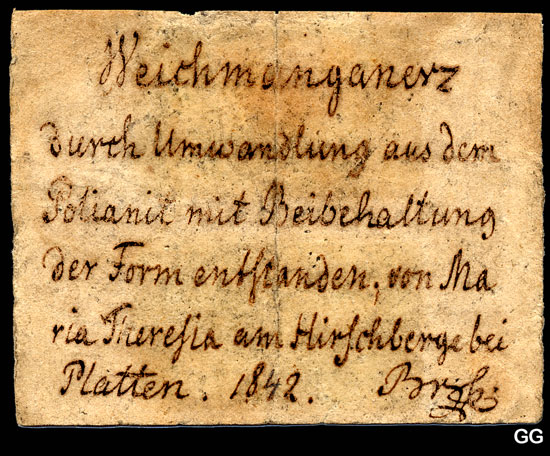 Weichmanganerz
durch Umwandlung aus dem
Polianit mit Beibehaltung
der Form entstanden, von Ma
ria Theresia am Hirschberge bei
Platten. 1842.
GG